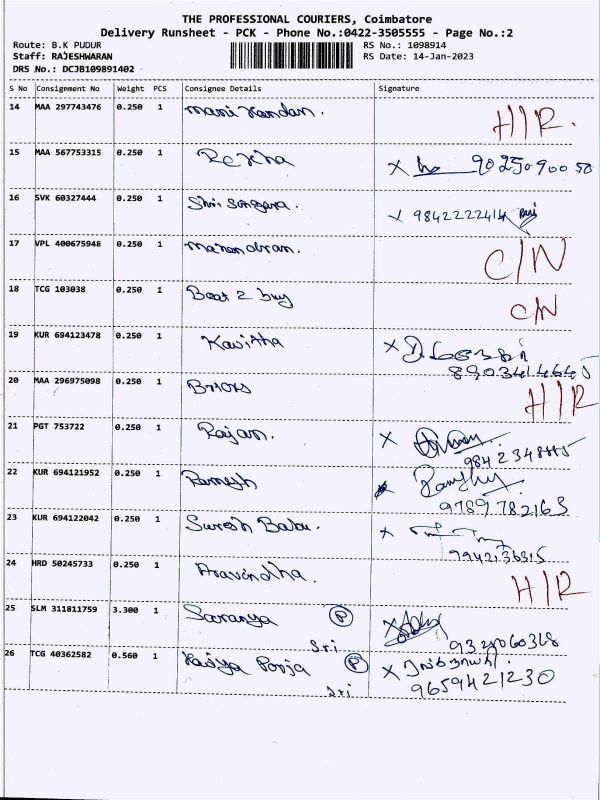 THE PROFESSIONAL COURIERS, Coimbatore
Delivery Runsheet - PCK - Phone No.:0422-3505555 - Page No.:2
Route: B.K PUDUR RS No.: 1098914
Staff: RAJESHWARAN RS Date: 14-Jan-2023
DRS No.: DCJB109891402
S No Consignment No Weight PCS Consignee Details Signature
14 MAA 297743476 0.250 1 mani kandan. H/R.
15 MAA 567753315 0.250 1 Rekha X 9025090050
16 SVK 60327444 0.250 1 Shri X 9842222414
17 VPL 400675948 0.250 1 C/N
18 TCG 103038 0.250 1 Best 2 buy C/N
19 KUR 694123478 0.250 1 Kavitha X
8903414645
20 MAA 296975098 0.250 1 H/R
21 PGT 753722 0.250 1 Rajan. X
22 KUR 694121952 0.250 1 Ramesh
9789782163
23 KUR 694122042 0.250 1 Suresh Babu. X
24 HRD 50245733 0.250 1 Aravindha. H/R
25 SLM 311811759 3.300 1 Saranya P X
Sri
26 TCG 40362582 0.560 1 P X
Sri 9659421230